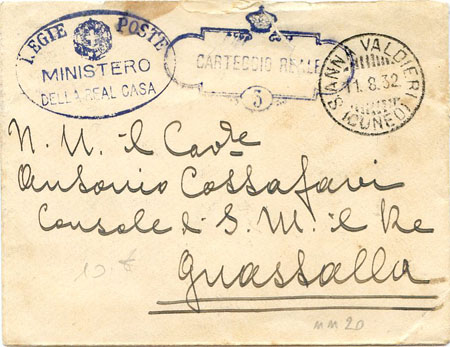 REGIE POSTE
MINISTERO
DELLA REAL CASA
CARTEGGIO REALE
3
S. ANNA VALDIERI
11.8.32
(CUNEO)
N. U. il Cav.
Antonio Cossafavi
Console di S. M. il Re
Guastalla
mm 20